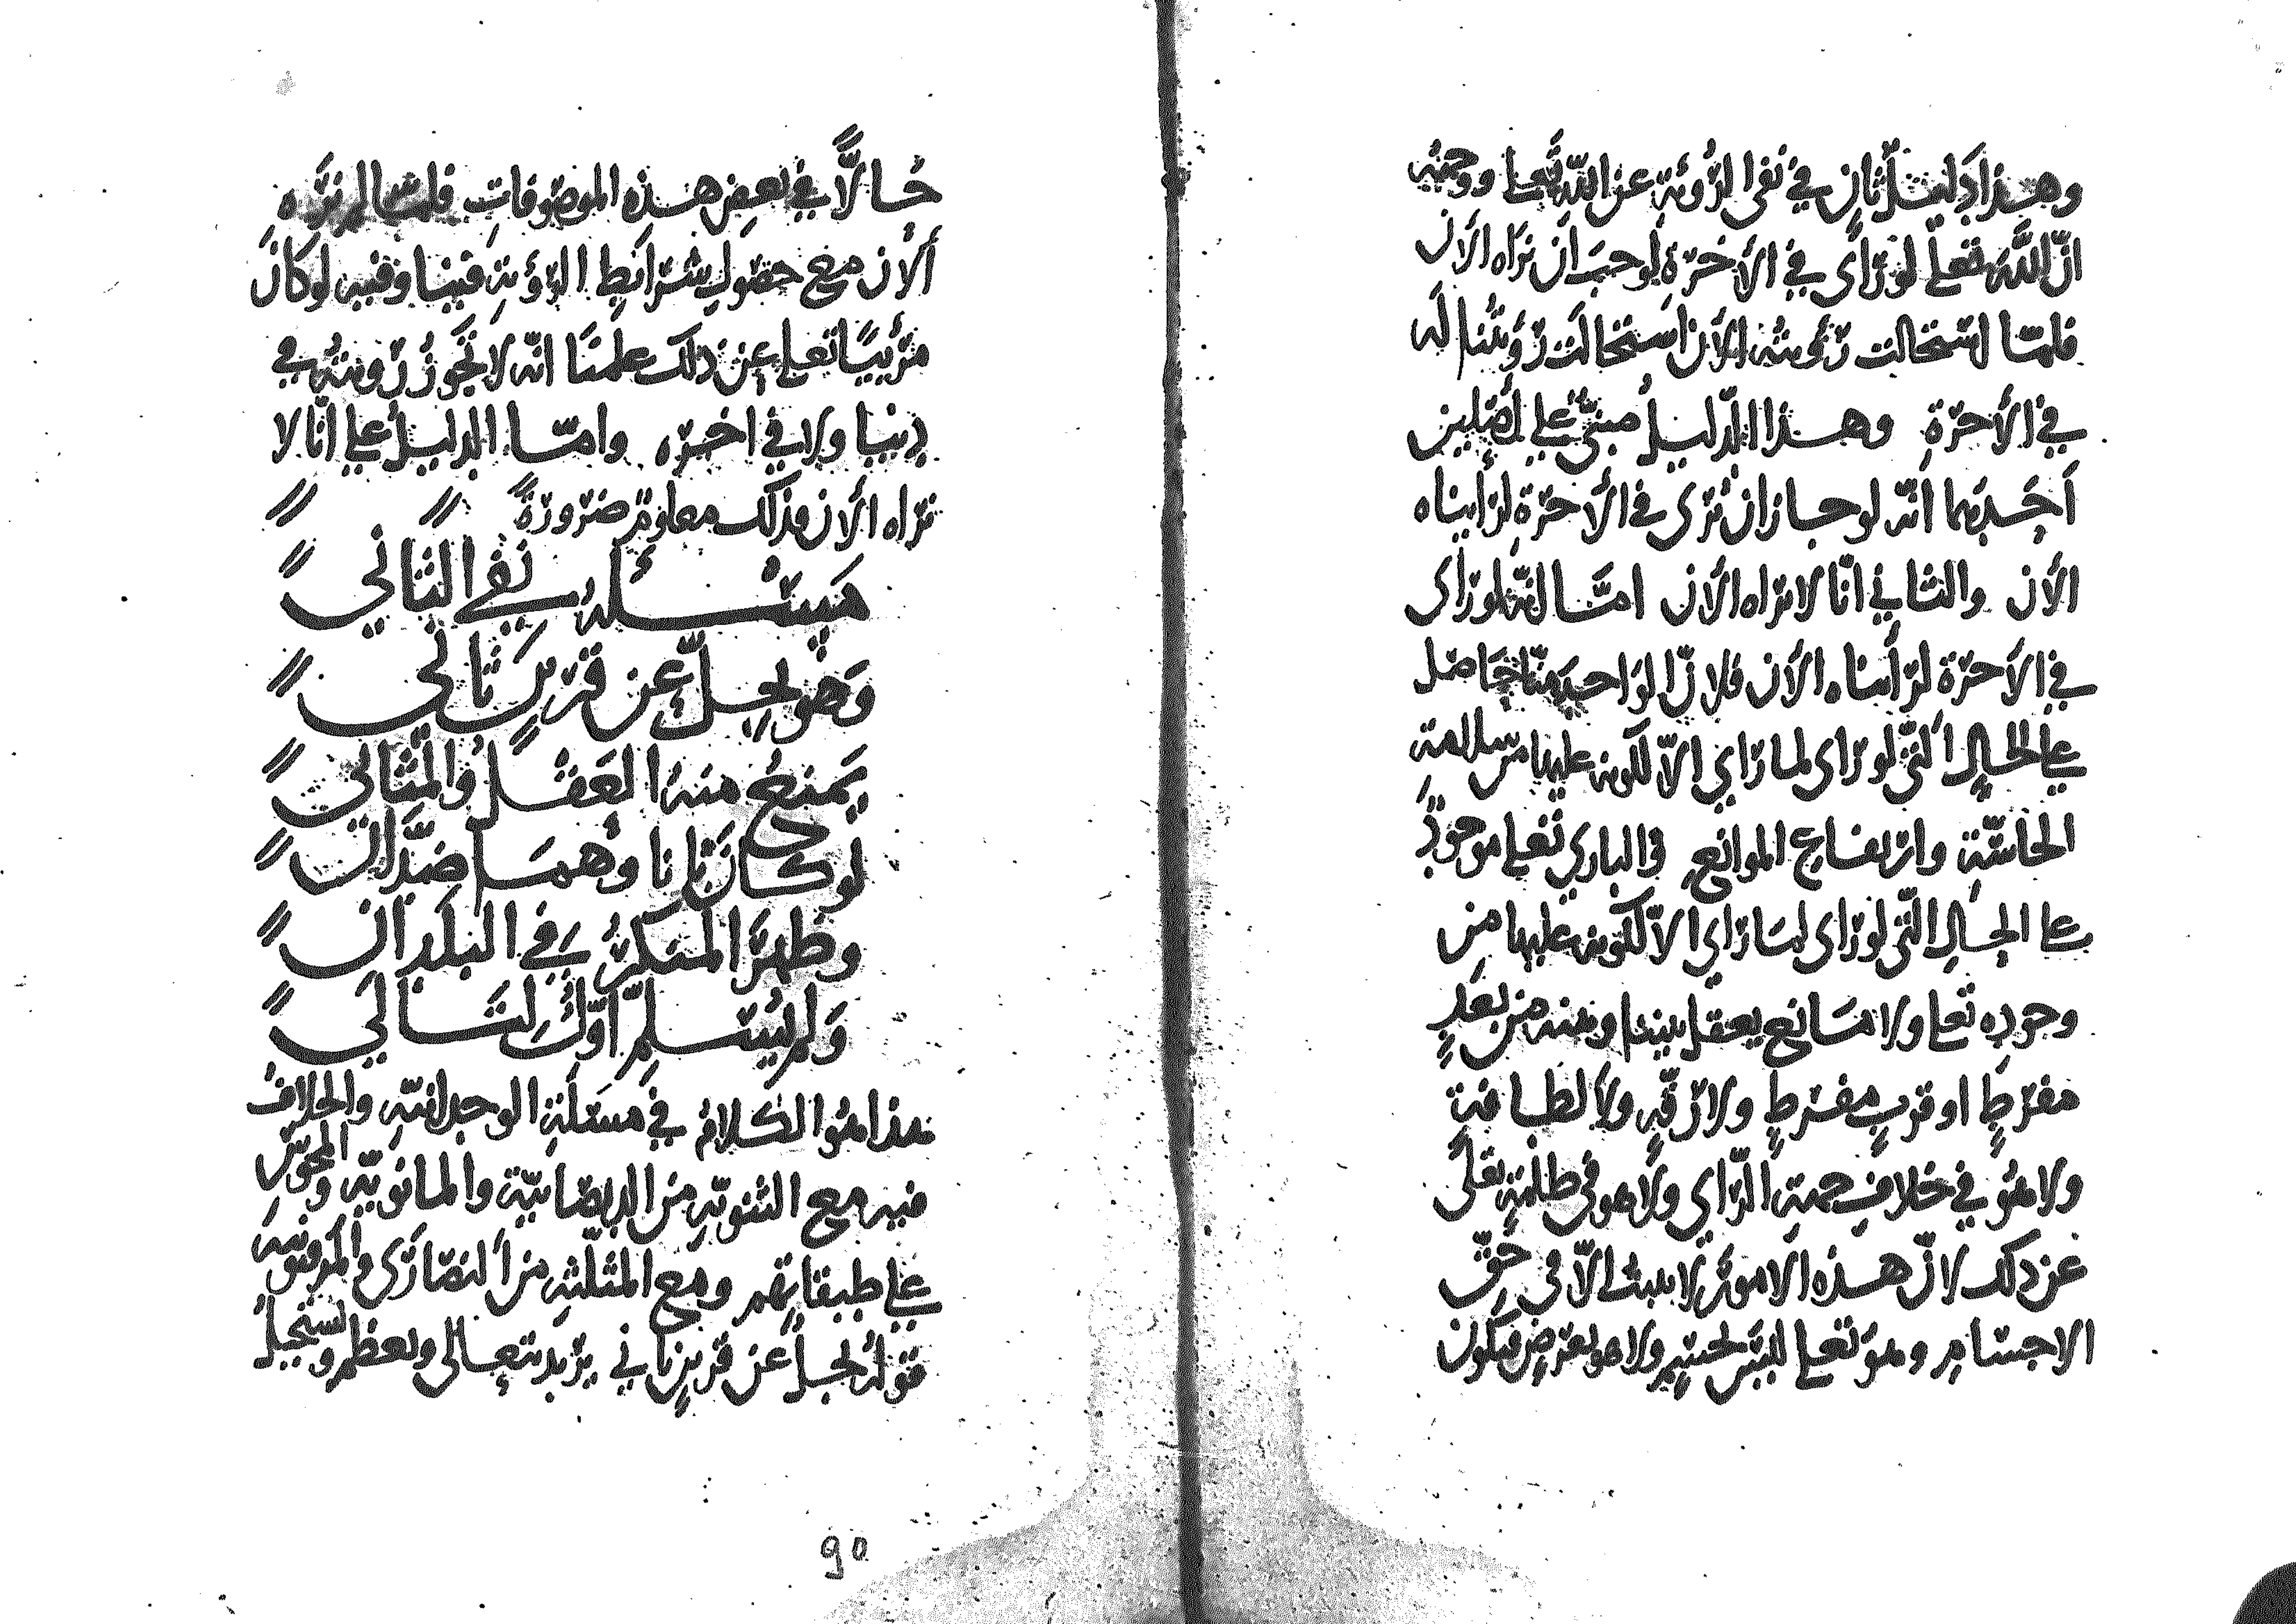 وهذا دليل ثان في نفي الرؤية عن الله تعالى ووجهه
انّ الله تعلى لو رأى في الأخرة لوجب ان نراه الأن
فلمّا استحالت رؤيته الأن استحالت رؤيتنا له
في الأخرة وهذا الدّليل مبنيّ على أصلين
أحدهما أنّه لو جاز ان يُرى في الأخرة لرأيناه
الأن والثاني انّا لا نراه الأن امّا انّه لو رأى
في الأخرة لرأيناه الأن فلانّ الواحد منّا حاصل
على الحال الّتي لو رأى لما رأى الاّ لكونه عليها من سلامة
الحاسّة وارتفاع الموانع والباري تعلى موجود
على الحال الّتي لو رأى لما رأى الاّ لكونه عليها من
وجوده تعلى ولا مانع يعقل بيننا وبينه من بعدٍ
مفرطٍ او قربٍ مفرطٍ ولا رقّه ولا لطافة
ولا هو في خلاف جهة الرّأي ولا هو في ظلمة تعلى
عن ذلك لانّ هذه الامور لا تثبت الاّ في حقّ
الاجسام وهو تعلى ليس بجسم ولا هو بعرض فيكون
حالًّا في بعض هذه الموصوفات فلمّا لم نره
ألأن مع حصول شرائط الرؤية فينا وفيه لو كان
مرئيًا تعلى عن ذلك علمنا انّه لا تجوز رؤيته في
دنيا ولا في اخره وامّا الدليل على انّا لا
نراه الأن فذلك معلوم ضرورةً
مسئلة في نفي الثاني
وهو يجلّ عن قرين ثاني
يمنع منه العقل والمثاني
لو كان ثانا وهما ضدّان
وظهر المنكر في البلدان
ولم يسلم اوّل لتالي
هذا هو الكلام في مسئلة الوحدانيّه والخلاف
فيه مع الثنويّه من الديصانيّة والمانويّه والمجوس
على طبقاتهم ومع المثلّثه من النصارى والمرقونيه
قوله يجلّ عن قرين ثاني يريد يتعالى ويعظم ويستحيل
90